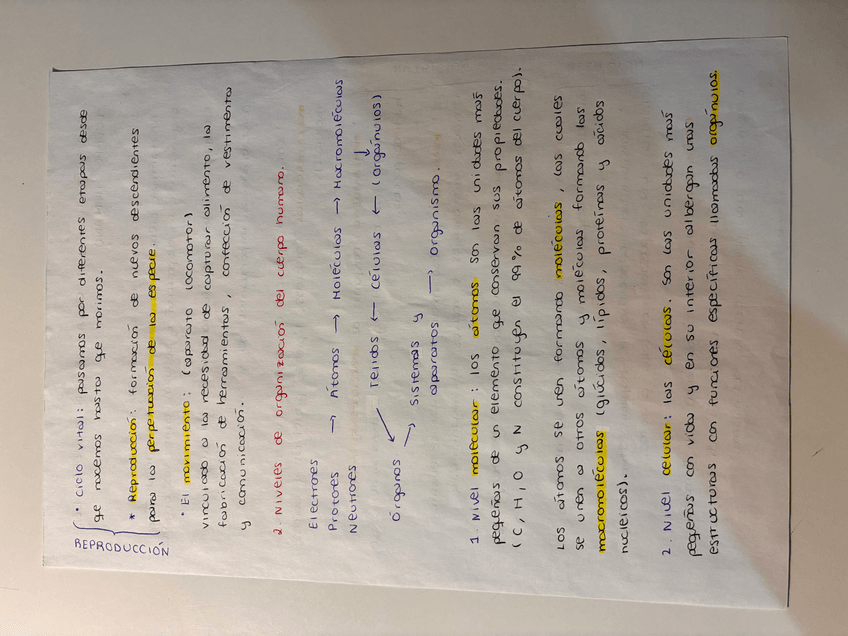 • Ciclo vital: pasamos por diferentes etapas desde
qe nacemos hasta qe morimos.
* Reproducción: formación de nuevos descendientes
para la perpetuación de la especie.
REPRODUCCIÓN
• El movimiento: (aparato locomotor)
vinculado a la necesidad de capturar alimento, la
fabricación de herramientas, confección de vestimenta
y comunicación.
2. Niveles de organización del cuerpo humano.
Electrones
Protones → Átomos → Moléculas → Macromoléculas
Neutrones
↓
Órganos ← Tejidos ← Células ← (orgánulos)
→ Sistemas y
aparatos → Organismo.
1. Nivel molecular: los átomos son las unidades más
pegeñas de un elemento qe conservan sus propiedades.
(C, H, O y N constituyen el 99% de átomos del cuerpo).
Los átomos se unen formando moléculas, las cuales
se unen a otros átomos y moléculas formando las
macromoléculas (glúcidos, lípidos, proteínas y ácidos
nucleicos).
2. Nivel celular: las células. Son las unidades más
pegeñas con vida y en su interior albergan unas
estructuras con funciones específicas llamadas orgánulos.